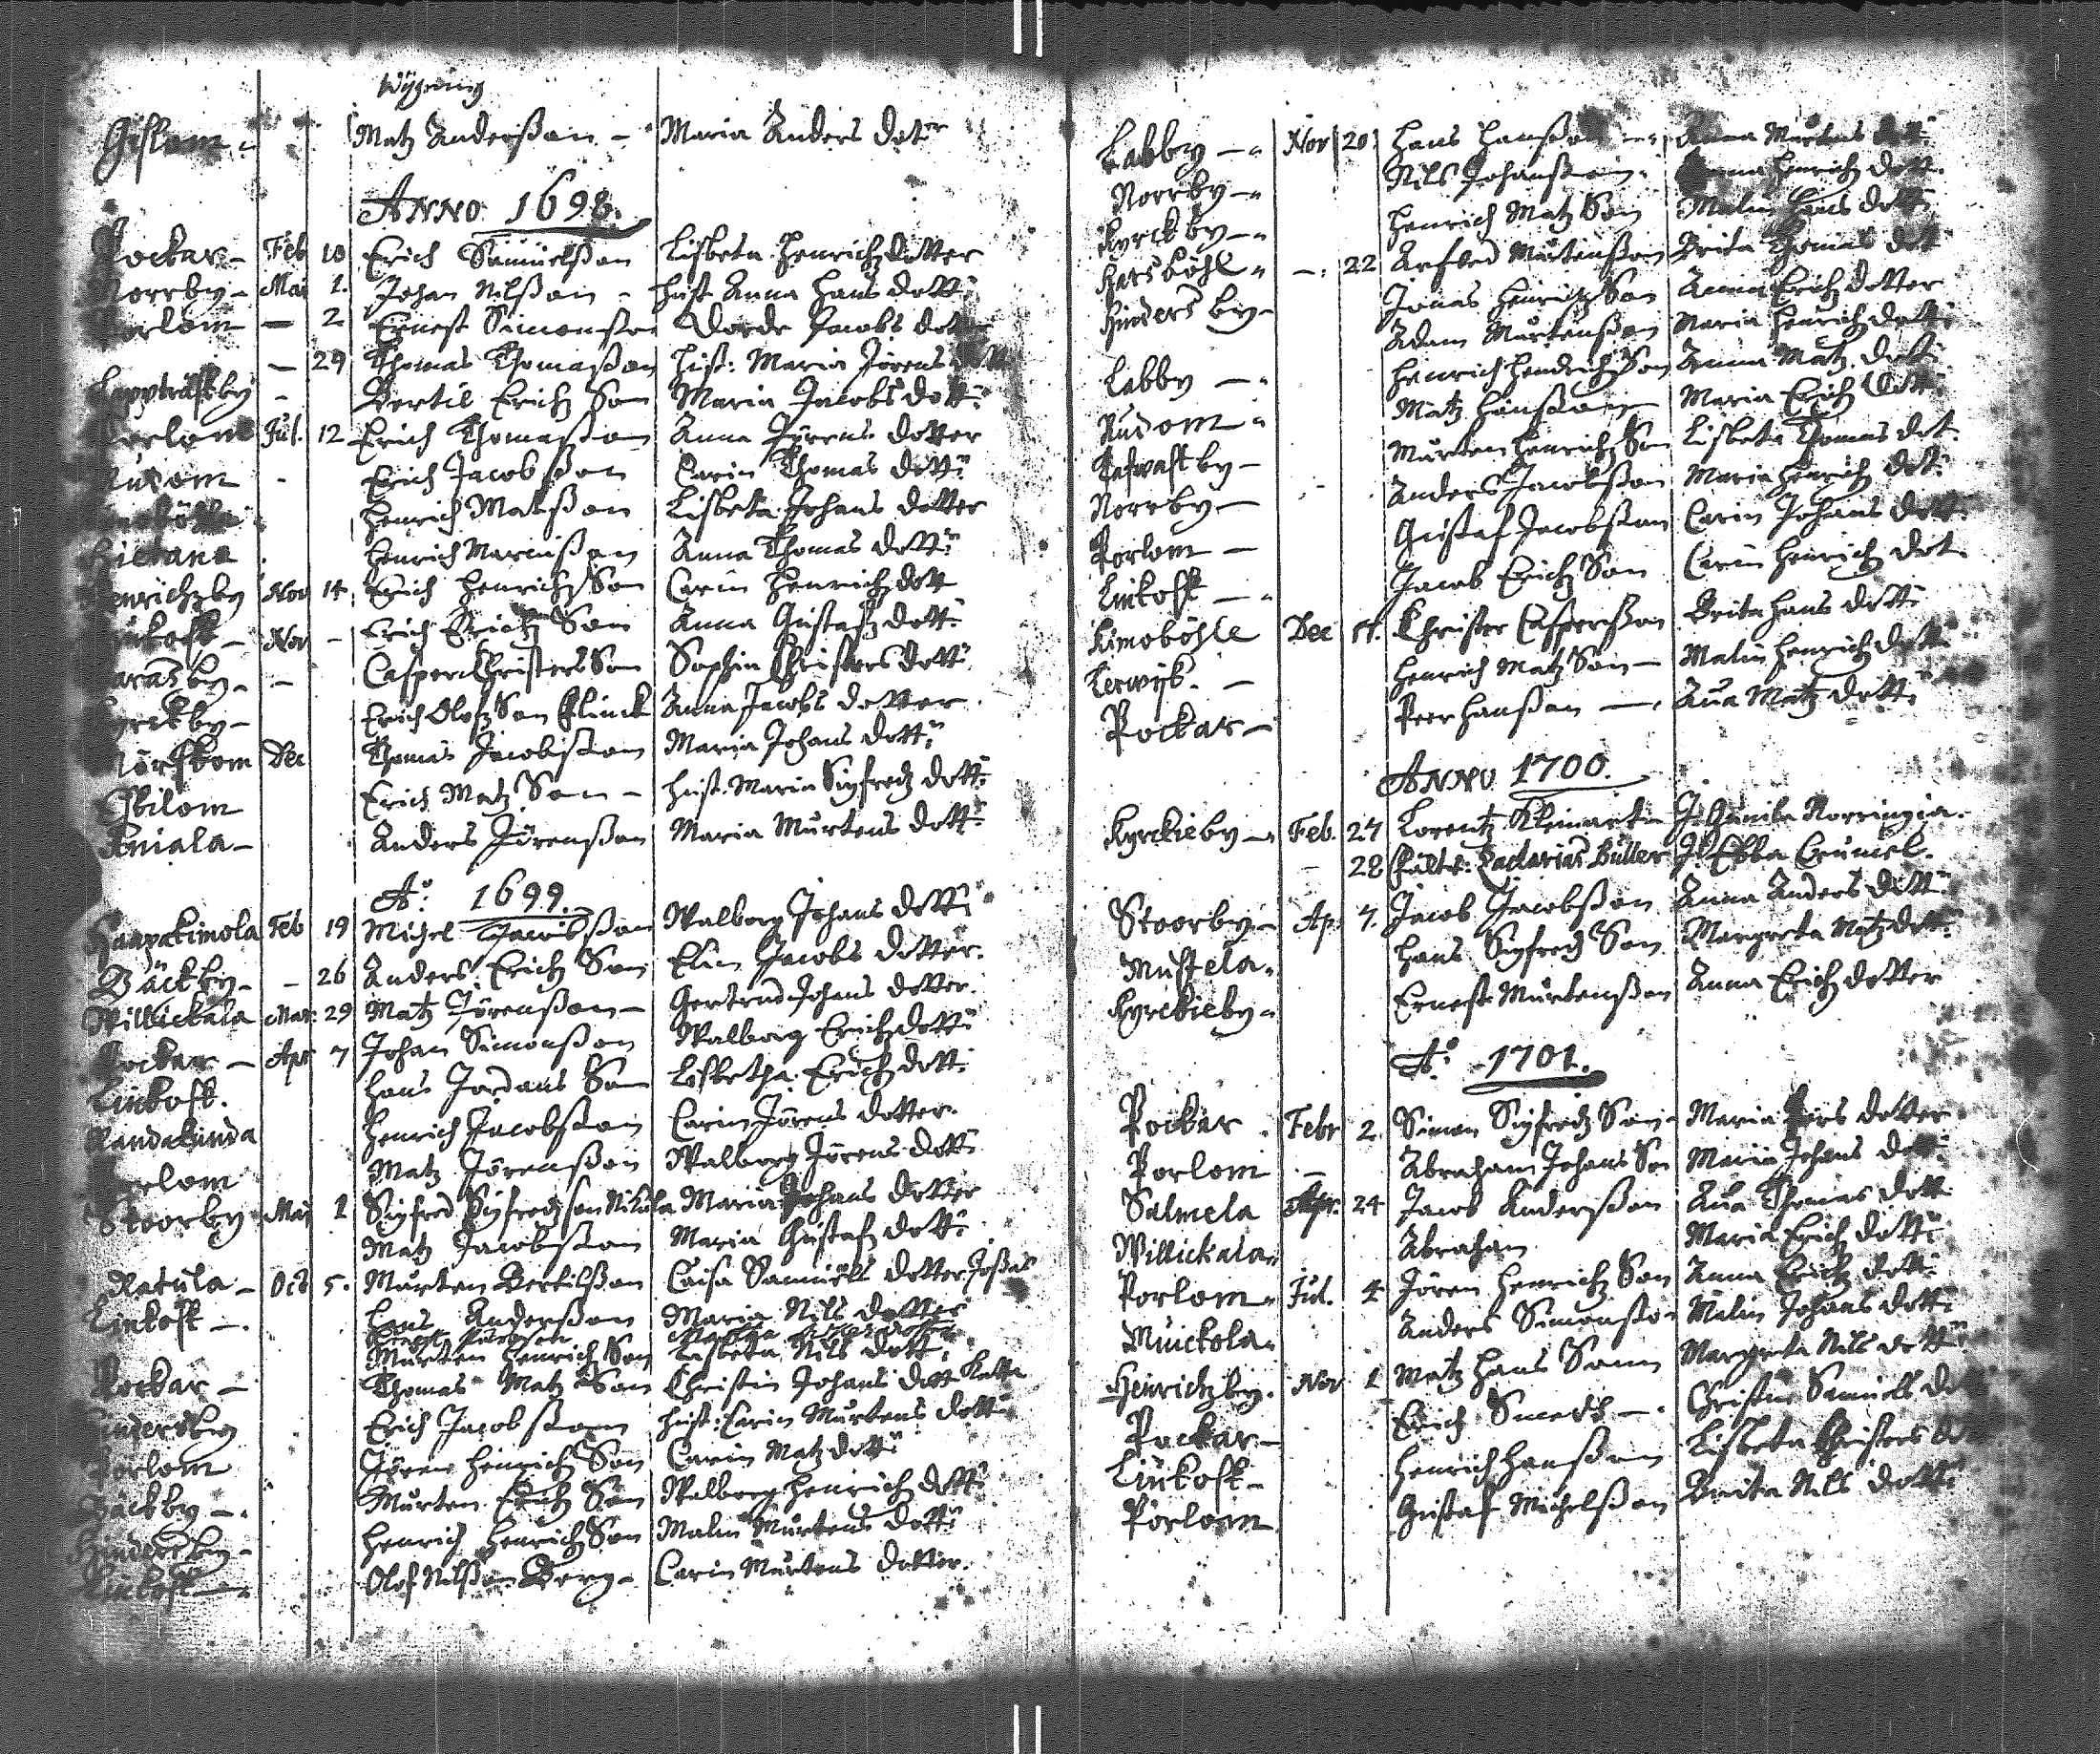 Wijgning
Gislom Matz Anderßon - Maria Anders dotr
ANNO 1698.
Pockar - Feb 10 Erich Samuelßon Lisbeta Henrichz dotter
Norrby - Mar 1. Johan Nilßon - hust Anna Hans dott:
Porlom - 2 Ernest Simonßon Dorde Jacobs dotter
- 29 Thomas Thomaßon hust: Maria Jörens dott
Lappträskby - Bertil Erichz Son Maria Jacobs dott:
Porlom Jul. 12 Erich Thomaßon Anna Jörens dotter
Rudom - Erich Jacobßon Carin Thomas dott:
Henrich Matßon Lisbeta Johans dotter
Hietana Henrich Marcußon Anna Thomas dott:
Henrichzby Nov 14. Erich Henrichz Son Carin Henrichz dott
Linkosk - Nov - Erich Erichz Son Anna Gustafz dott:
- Casper Christers Son Sophia Christers dott:
Kyrckby - Erich Olofz Son Flinck Anna Jacobs dotter.
Mörskom Dec Thomas Jacobßon Maria Johans dott:
Eskilom Erich Matz Son - hust. Maria Sigfredz dott:
Kniala - Anders Jörenßon Maria Mårtens dott:
Ao: 1699.
Haapakimola Feb 19 Michel Jacobßon Walborg Johans dott:
Bäckby - - 26 Anders Erichz Son Elin Jacobs dotter.
Willickala Mar: 29 Matz Jörenßon - Gertrud Johans dotter.
Pockar - Apr 7 Johan Simonßon Walborg Erichz dott:
Linkosk. Hans Jordans Son Lisbetha Erichz dott:
Randakunda Henrich Jacobßon Carin Jörens dotter.
Porlom Matz Jörenßon Walborg Jörens dott:
Stoorby - Maj 1 Sigfred Sigfredz son Nikula Maria Johans dotter
Matz Jacobßon Maria Gustafz dott:
Ratula - Oct 5. Mårten Bertilßon Caisa Samuels dotter
Linkosk -. Lars Anderßon Maria Nils dotter
Mårten Henrichz Son Lisbeta Nils dott:
Pockar - Thomas Matz Son Christin Johans dott
Hindersby Erich Jacobßon hust: Carin Mårtens dott:
Porlom Jören Henrichz Son Carin Matz dott:
Bäckby -. Mårten Erichz Son Walborg Henrich dott:
Hindersby - Henrich Henrichz Son Malin Mårtens dott:
Linkosk - Olof Nilßon Berg - Carin Mårtens dotter.
Labby - Nov 20 Hans Hanßon Anna Mårtens dott:
Norrby - Nils Johanßon. Anna Henrichz dott.
Kyrckby - Henrich Matz Son Malin Hans dott:
Harsböhle - 22 Arfved Mårtenßon Brita Thomas dott
Hindersby - Jonas Henrichz Son Anna Erichz dotter
Adam Mårtenßon Maria Henrich dott:
Henrich Hendrichz Son Anna Matz dott:
Labby - Matz Hanßon Maria Erich dott:
Rudom Mårten Henrichz Son Lisbeta Thomas dot.
Rafwastby - Anders Jacobßon Maria Henrich dot:
Norrby - Gustaf Jacobßon Carin Johans dott:
Porlom - Jacob Erichz Son Carin Henrich dot.
Linkosk -
Kimoböhle Dec 17. Christer Casperßon Brita Hans dott:
Lerwijk. - Henrich Matz Son - Malin Henrich dott:
Pockar - Peer Hanßon - Aua Matz dott:
ANNO 1700.
Kyrckieby - Feb. 27 Lorentz J: Gunila Norringia.
28 Zacharias Buller J: Ebba Crumel.
Stoorby - Ap 7. Jacob Jacobßon Anna Anders dott:
Mustela. Hans Sigfredz Son Margreta Matz dott:
Kyrckieby - Ernest Mårtenßon Anna Erich dotter
Ao: 1701.
Pockar. Febr 2. Simon Sigfredz Son - Maria Pers dotter
Porlom - Abraham Johans Son Maria Johans dott:
Salmela Apr. 24 Jacob Anderßon Aua Thomas dott
Willickala. Abraham Maria Erich dott:
Porlom. Jul. 4 Jören Henrichz Son Anna Erichz dott:
Muickola. Anders Simonßon Malin Johans dott:
Henrichzby. Nov 1 Matz Hans Sonn Margreta Nils dott:
Pockar - Erich Smedz -. Christin Samuels do
Linkosk - Henrich Hanßon Lisbeta Christers do
Porlom Gustaf Michelßon Brita Nils dott: